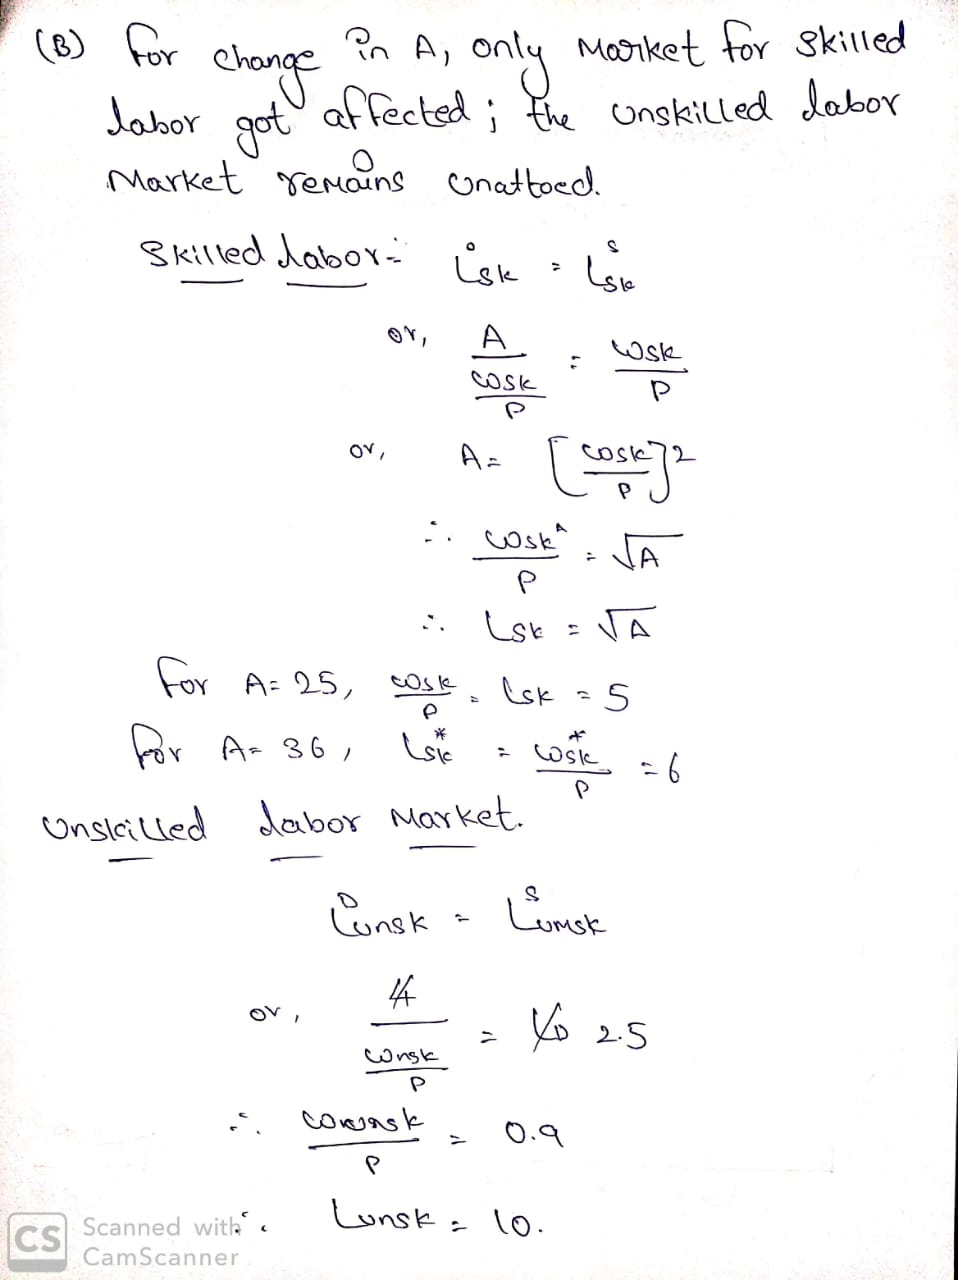 (B) For change in A, only Market for skilled
labor got affected; the unskilled labor
Market remains unattoed.
Skilled labor:- L^D_sk = L^S_sk
or, A / (ω_sk / P) = ω_sk / P
or, A = [ω_sk / P]^2
∴ ω_sk^A / P = √A
∴ L_sk = √A
For A = 25, ω_sk / P = L_sk = 5
For A = 36, L_sk^* = ω_sk^* / P = 6
Unskilled labor Market.
L^D_unsk = L^S_unsk
or, / (ω_nsk / P) = 2.5
∴ / P = 0.9
∴ L_unsk = 10.
CS Scanned with
CamScanner